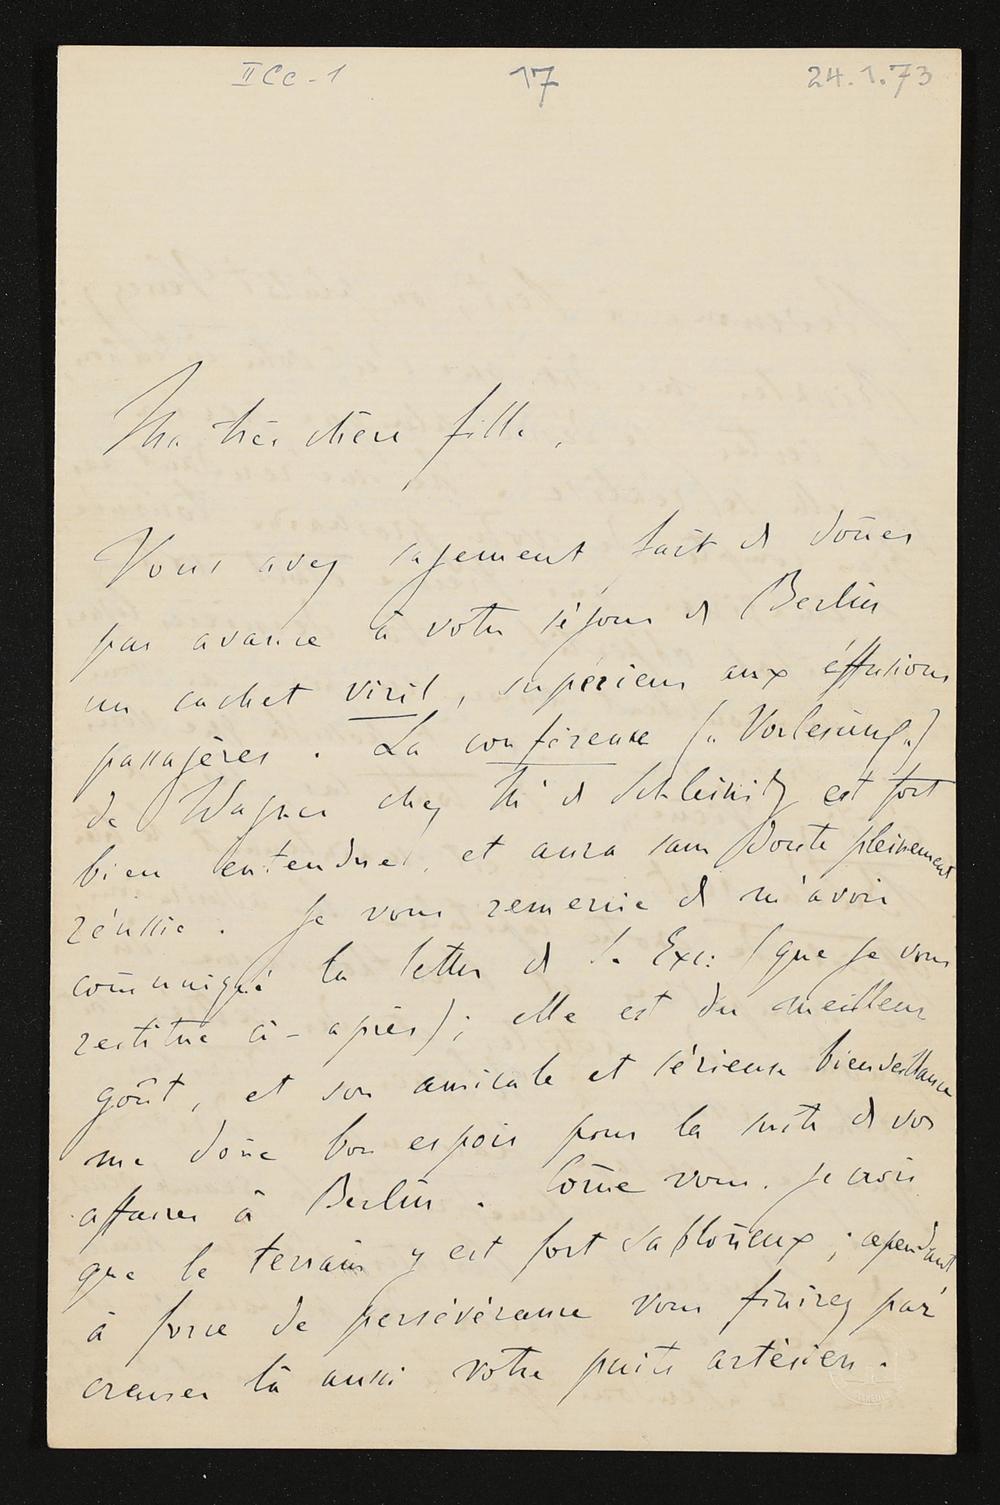 II Cc - 1 17 24.1.73
Ma très chère fille,
Vous avez sagement fait de doñer
par avance à votre séjour de Berlin
un cachet viril, supérieur aux éffusions
passagères. La conférence („Vorlesung„)
de Wagner chez Me de Schleinitz est fort
bien entendue, et aura sans doute pleinement
réussie. Je vous remercie de m'avoir
com̄uniqué la lettre de S. Exc: (que je vous
restitue ci-après); elle est du meilleur
goût, et son amicale et sérieuse bienveillance
me doñe bon espoir pour la suite de vos
affaires à Berlin. Com̄e vous, je crois
que le terrain y est fort sabloñeux; cependant
à force de persévérance vous finirez par
creuser là aussi votre puits artésien.